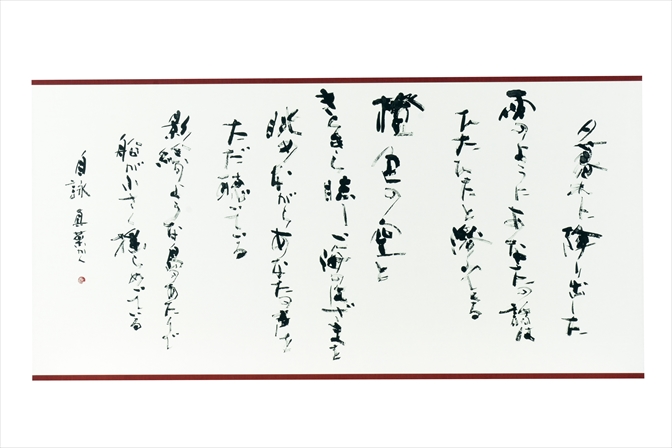 夕暮れに降り出した
雨のようにあなたの詩は
ひたひたと濡れてくる
橙色の空と
きらきら眩しい海のはざまを
眺めながらあなたの声を
ただ聴いている
影絵のような島のあたりで
船が小さく揺らめいている
自詠